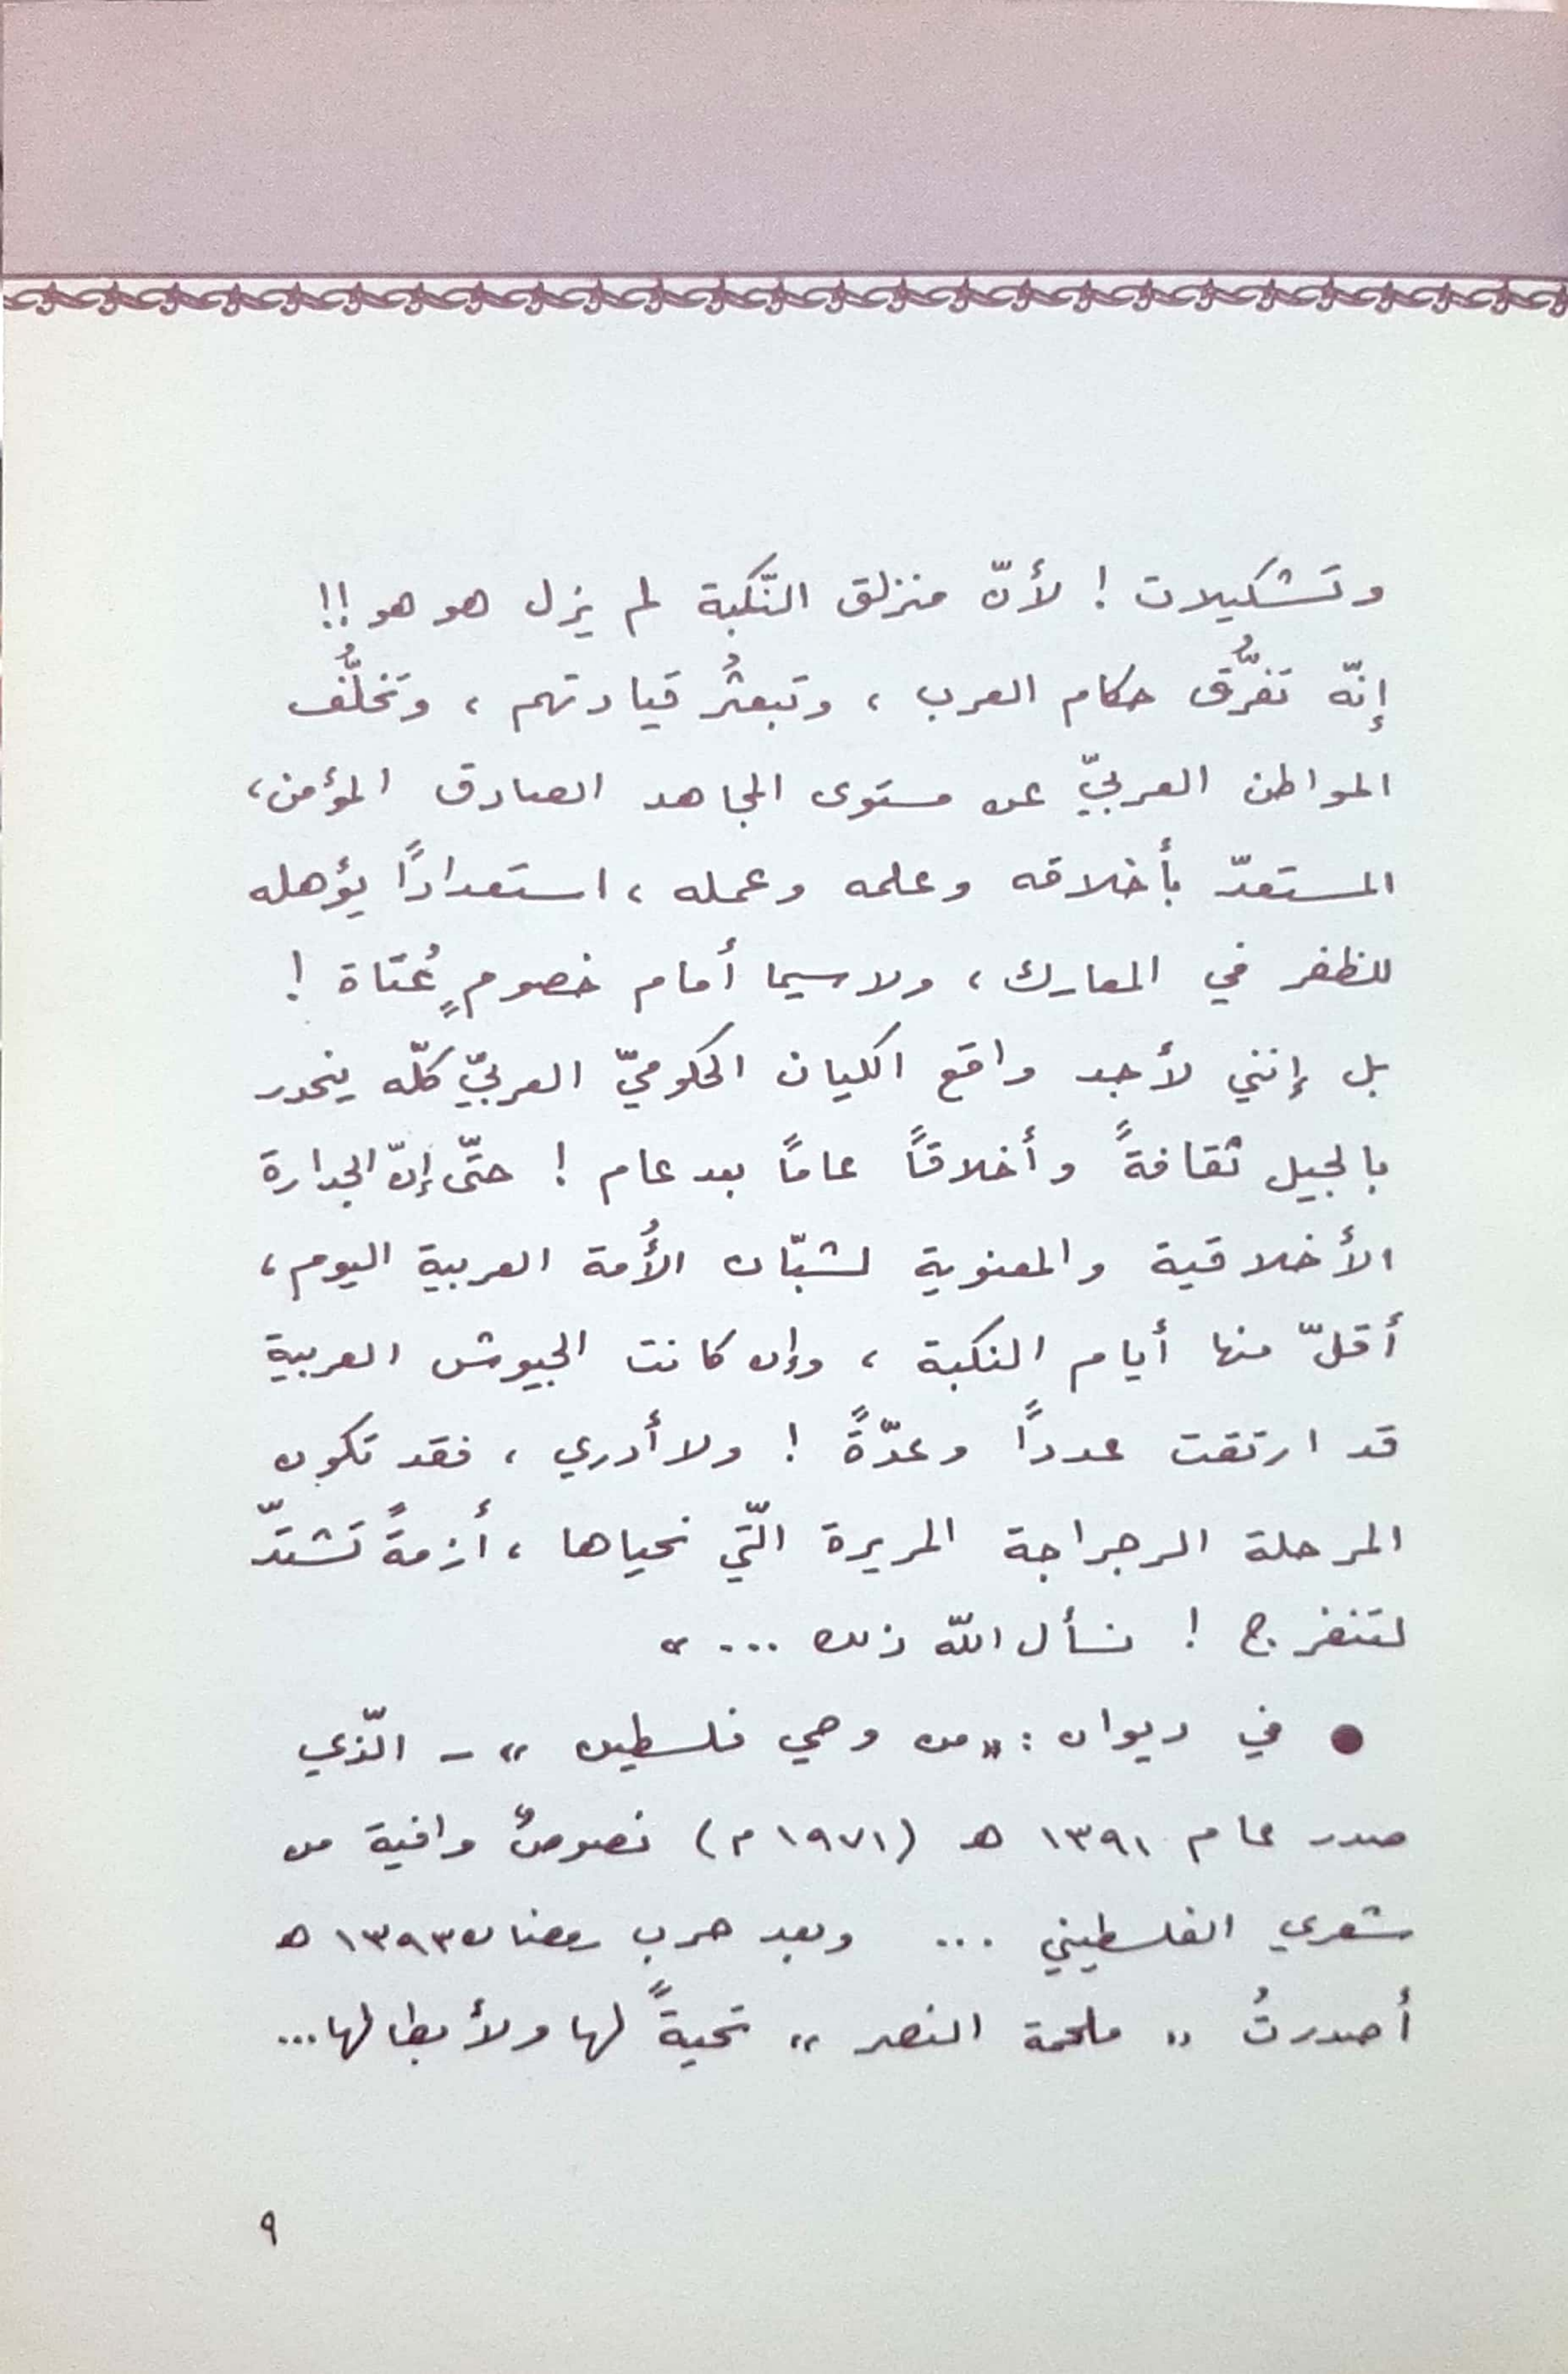 وتشكيلات ! لأنّ منزلق النّكبة لم يزل هو هو !!
إنّه تفرُّق حكام العرب ، وتبعثُر قيادتهم ، وتخلُّف
المواطن العربيّ عن مستوى المجاهد الصادق المؤمن ،
المستعدّ بأخلاقه وعلمه وعمله ، استعدادًا يؤهله
للظفر في المعارك ، ولاسيما أمام خصومٍ عُتاة !
بل إنني لأجد واقع الكيان الحكوميّ العربيّ كلّه ينحدر
بالجيل ثقافةً وأخلاقاً عاماً بعد عام ! حتّى إنّ الجدارة
الأخلاقية والمعنوية لشبّان الأُمة العربية اليوم ،
أقلّ منها أيام النكبة ، وإن كانت الجيوش العربية
قد ارتقت عدداً وعدّةً ! ولا أدري ، فقد تكون
المرحلة الرجراجة المريرة الّتي نحياها ، أزمةً تشتدّ
لتنفرج ! نسأل اللّه ذلك ... »
● في ديوان : « من وحي فلسطين » - الّذي
صدر عام ١٣٩١ هـ (١٩٧١ م) نصوصٌ وافية من
شعري الفلسطيني ... وبعد حرب رمضان ١٣٩٣ هـ
أصدرتُ « ملحمة النصر » تحيةً لها ولأبطالها...
٩